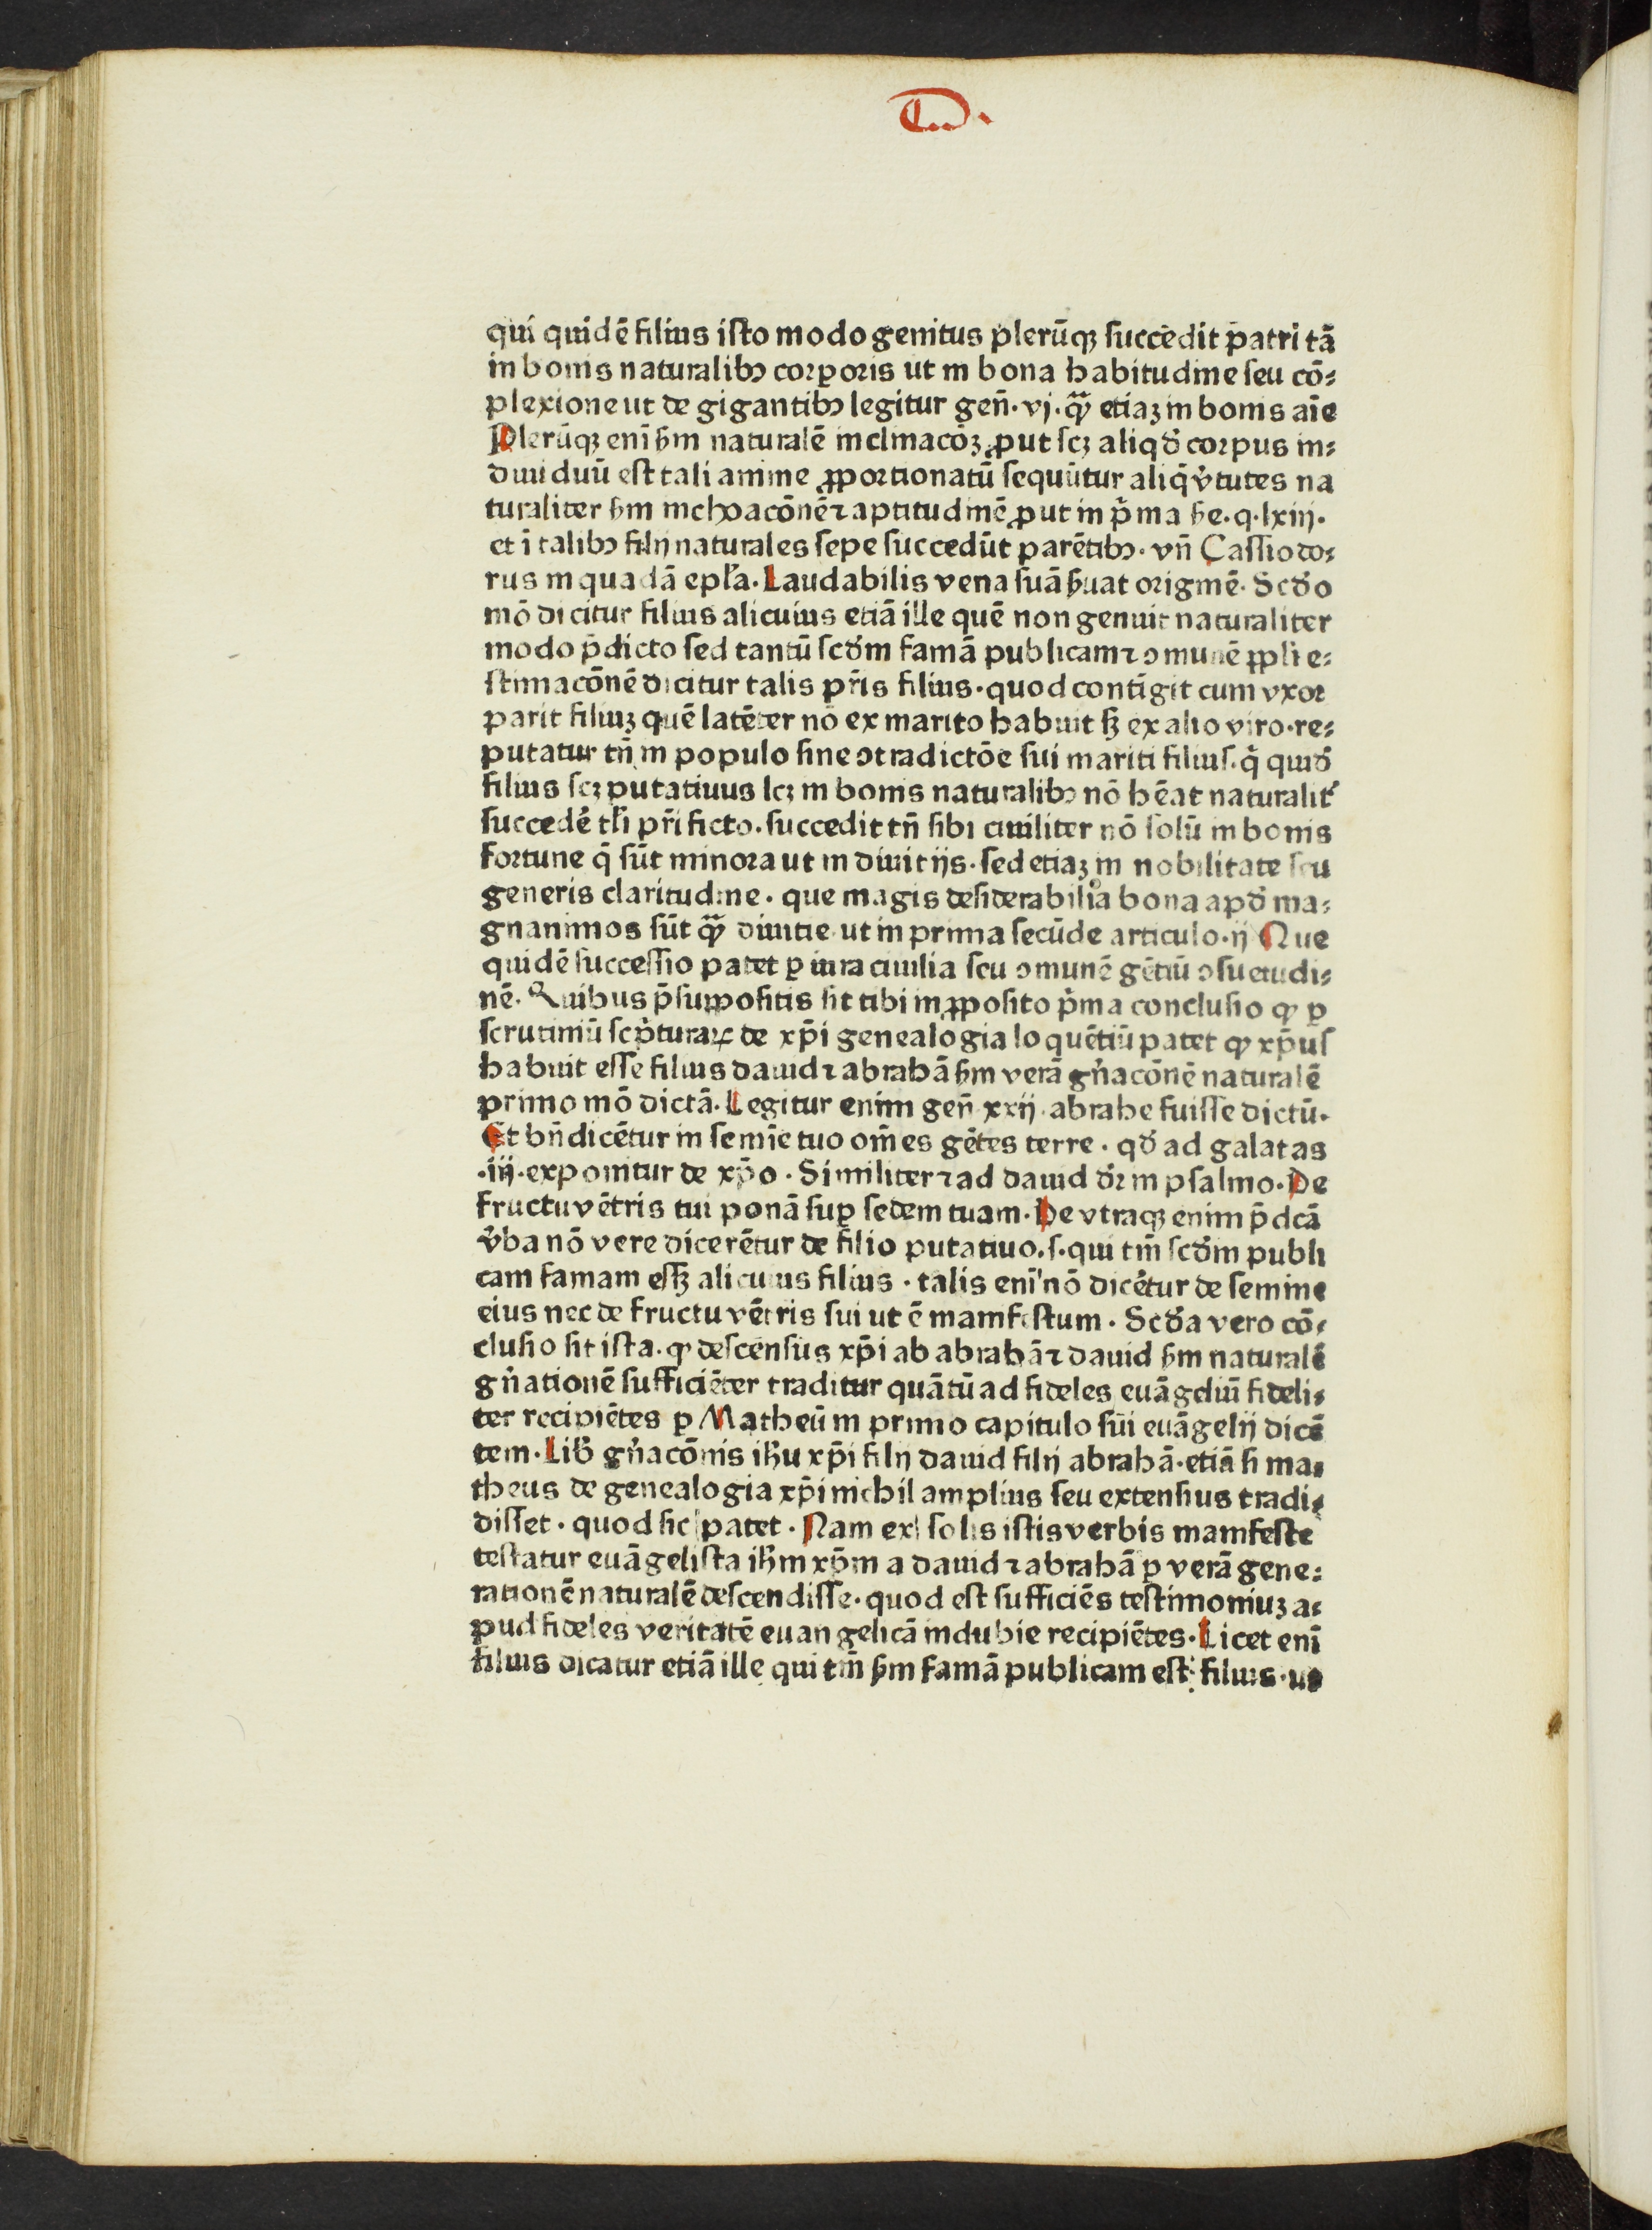 qui quidē filius isto modo genitus plerūqꝫ succedit patri tā
in bonis naturalibꝰ corporis ut in bona habitudine seu cō⸗
plexione ut de gigantibꝰ legitur geñ. vj. qᷓꝫ etiaꝫ in bonis aīe
Plerūqꝫ enī s̄m naturalē inclinacōꝫ ꝓut scꝫ aliqd̓ corpus in⸗
diuiduū est tali anime ꝓportionatū sequūtur aliq̄ v̓tutes na
turaliter s̄m inchoacōnē ⁊ aptitudinē ꝓut in p̓ma s̄e. q. lxiij.
et ī talibꝰ filij naturales sepe succedūt parētibꝰ. vñ Cassiodo⸗
rus in quadā epl̄a. Laudabilis vena suā s̄uat originē. Scd̓o
mō dicitur filius alicuius etiā ille quē non genuit naturaliter
modo p̄dicto sed tantū scd̓m famā publicam ⁊ ꝯmunē ꝓpl̄i e⸗
stimacōnē dicitur talis pr̄is filius. quod contīgit cum vxor
parit filiuꝫ quē latēter nō ex marito habuit sꝫ ex alio viro. re⸗
putatur tn̄ in populo sine ꝯtradictōe sui mariti filius. q̓ quid̓
filius scꝫ putatiuus lcꝫ in bonis naturalibꝰ nō hēat naturalit̓
succedē tl̄i pr̄i ficto. succedit tn̄ sibi ciuiliter nō solū in bonis
fortune q̄ sūt minora ut in diuitijs. sed etiaꝫ in nobilitate seu
generis claritudine. que magis desiderabilia bona apd̓ ma⸗
gnanimos sūt qᷓꝫ diuitie ut in prima secūde articulo. ij Que
quidē successio patet ꝑ iura ciuilia seu ꝯmunē gētiū ꝯsuetudi⸗
nē. Quibus p̄suppositis sit tibi in ꝓposito p̓ma conclusio ꝙ ꝑ
scrutiniū scp̓turaꝝ de xp̄i genealogia loquētiū patet ꝙ xp̄us
habuit esse filius dauid ⁊ abrahā s̄m verā gn̓acōnē naturalē
primo mō dictā. Legitur enim geñ xxij. abrahe fuisse dictū.
Et bn̄dicētur in semīe tuo om̄es gētes terre. qd̓ ad galatas
.iij. exponitur de xp̄o. Similiter ⁊ ad dauid dr̄ in psalmo. De
fructu vētris tui ponā suꝑ sedem tuam. De vtraqꝫ enim p̄dcā
v̓ba nō vere dicerētur de filio putatiuo. s. qui tm̄ scd̓m publi
cam famam esꝫ alicuius filius. talis enī nō dicētur de semine
eius nec de fructu vētris sui ut ē manifestum. Scd̓a vero cō⸗
clusio sit ista. ꝙ descensus xp̄i ab abrahā ⁊ dauid s̄m naturalē
gn̓ationē sufficiēter traditur quātū ad fideles euāgeliū fideli⸗
ter recipiētes ꝑ Matheū in primo capitulo sui euāgelij dicē
tem. Lib̓ gn̓acōnis ih̄u xp̄i filij dauid filij abrahā. etiā si ma⸗
theus de genealogia xp̄i nichil amplius seu extensius tradi⸗
disset. quod sic patet. Nam ex solis istis verbis manifeste
testatur euāgelista ih̄m xp̄m a dauid ⁊ abrahā ꝑ verā gene⸗
rationē naturalē descendisse. quod est sufficiēs testimoniuꝫ a⸗
pud fideles veritatē euangelicā indubie recipiētes. Licet enī
filius dicatur etiā ille qui tm̄ s̄m famā publicam est filius. ut